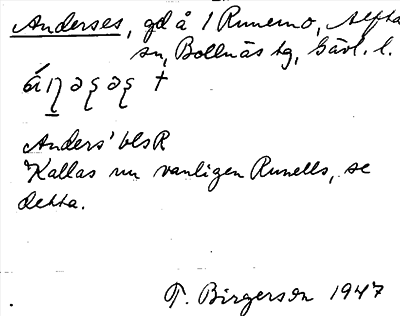 Anderses, gd å 1 Runemo, Alfta
sn, Bollnäs tg, Gävl. l.
Anders' bls R
Kallas nu vanligen Runells, se
detta.
T. Birgerson 1947